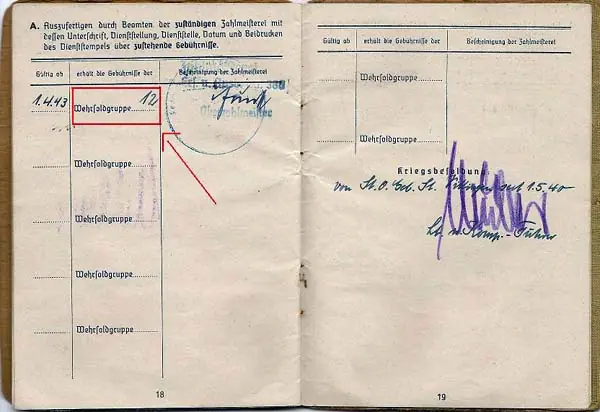 A. Auszufertigen durch Beamten der zuständigen Zahlmeisterei mit
dessen Unterschrift, Dienststellung, Dienststelle, Datum und Beidrucken
des Dienststempels über zustehende Gebührnisse.
Gültig ab
erhält die Gebührnisse der
Bescheinigung der Zahlmeisterei
1.4.43
Wehrsoldgruppe 12
Oberzahlmeister
Wehrsoldgruppe
Wehrsoldgruppe
Wehrsoldgruppe
Wehrsoldgruppe
18
Gültig ab
erhält die Gebührnisse der
Bescheinigung der Zahlmeisterei
Wehrsoldgruppe
Wehrsoldgruppe
Kriegsbesoldung
von St.O. seit 1.5.40
Lt. u. Komp.-Führer
19